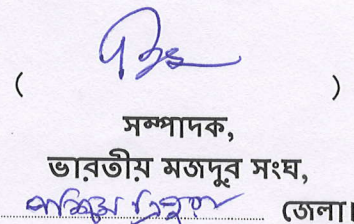 ( )
সম্পাদক,
ভারতীয় মজদুর সংঘ,
পশ্চিম ত্রিপুরা জেলা।